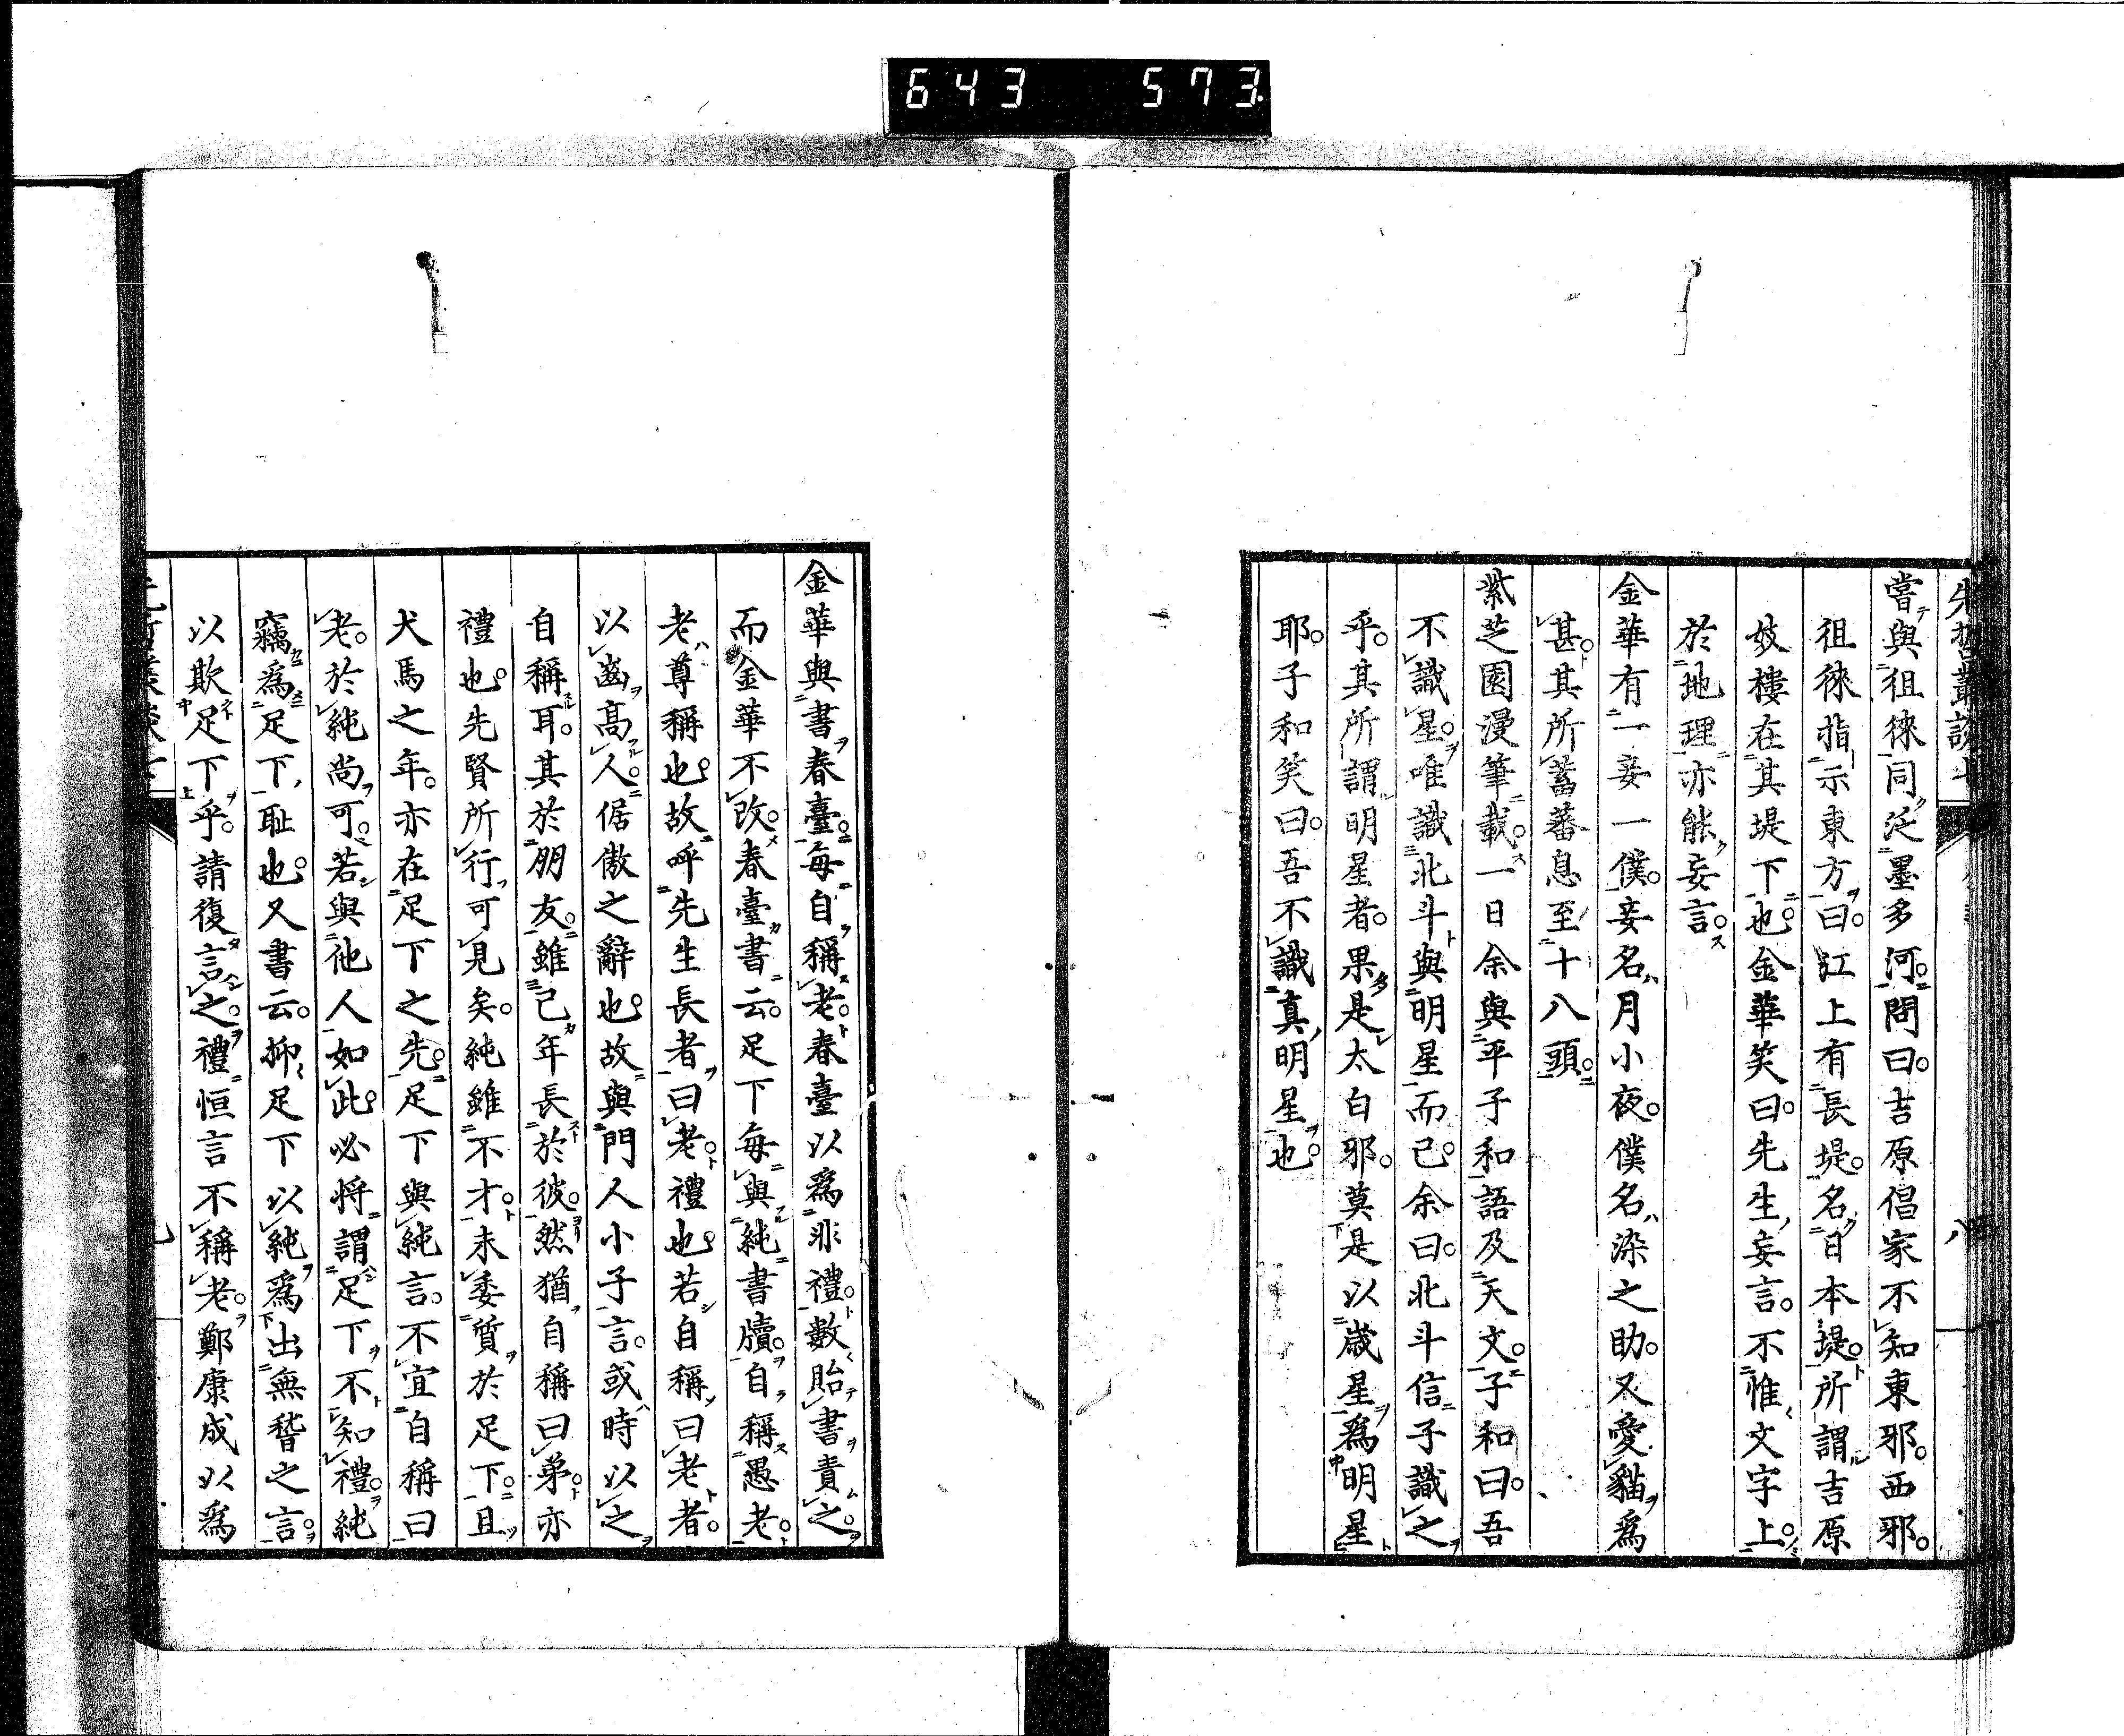 643 573
先哲叢談七
嘗與徂徠同泛墨多河。問曰。吉原倡家不知東邪。西邪。
徂徠指示東方曰。江上有長堤。名日本堤。所謂吉原
妓樓在其堤下也。金華笑曰。先生妄言。不惟文字上。
於地理亦能妄言。
金華有一妾一僕。妾名月小夜。僕名染之助。又愛貓爲
甚。其所蓄蕃息至十八頭。
紫芝園漫筆載。一日余與平子和語及天文。子和曰。吾
不識星。唯識北斗與明星而已。余曰。北斗信子識之
乎。其所謂明星者。果是太白邪。莫是以歲星爲明星
耶。子和笑曰。吾不識真明星也。
八
金華與書春臺。每自稱老。春臺以爲非禮。數貽書責之。
而金華不改。春臺書云。足下每與純書牘。自稱愚老。
老尊稱也。故呼先生長者曰老。禮也。若自稱曰老者。
以齒高人。倨傲之辭也。故與門人小子言。或時以之
自稱耳。其於朋友。雖己年長於彼。然猶自稱曰弟。亦
禮也。先賢所行可見矣。純雖不才。未委質於足下。且
犬馬之年。亦在足下之先。足下與純言。不宜自稱曰
老。於純尚可。若與他人如此。必將謂足下不知禮。純
竊爲足下耻也。又書云。抑足下以純爲出無稽之言。
以欺足下乎。請復言之。禮恒言不稱老。鄭康成以爲